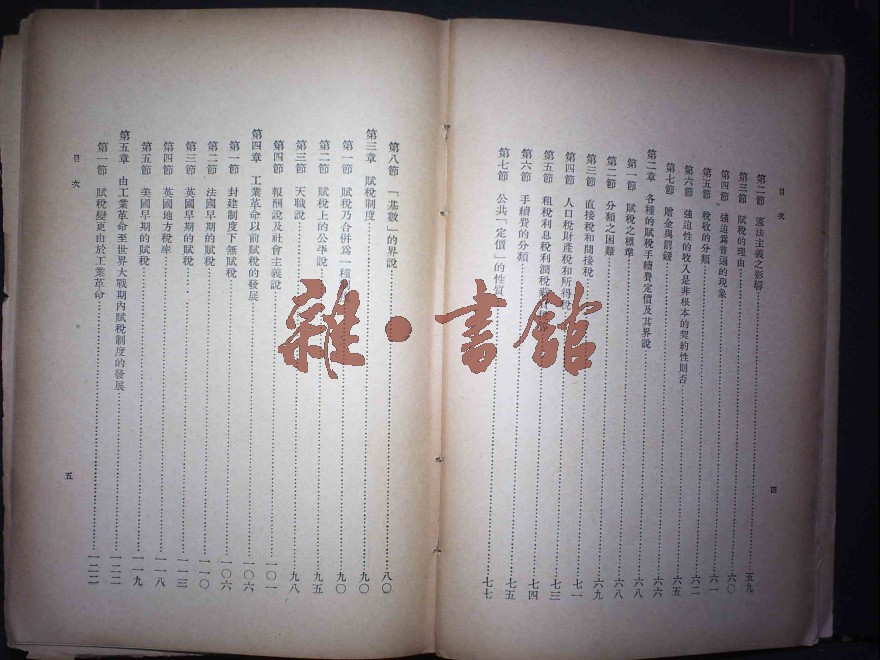 目次
第二節 憲法主義之影響……五九
第三節 賦稅的理由……六〇
第四節 強迫爲普遍的現象……六一
第五節 稅收的分類
第六節 強迫性的收入是非根本的契約性則否……六五
第七節 贈金與罰鍰……六六
第二章 各種的賦稅手續費定價及其界說……六八
第一節 賦稅之標準……六八
第二節 分類之困難……六九
第三節 直接稅和間接稅
第四節 人口稅財產稅和所得稅……七一
第五節 租稅利息稅利潤稅……七三
第六節 手續費的分類……七四
第七節 公共「定價」的性質……七五
七七
四
第八節 「基數」的界說……八〇
第三章 賦稅制度……九〇
第一節 賦稅乃合併爲一種……九〇
第二節 賦稅上的公平說……九五
第三節 天職說……九八
第四節 報酬說及社會主義說……一〇一
第四章 工業革命以前賦稅的發展……一〇六
第一節 封建制度下無賦稅……一〇六
第二節 法國早期的賦稅……一一〇
第三節 英國早期的賦稅……一一三
第四節 英國地方稅率……一一八
第五節 美國早期的賦稅……一一九
第五章 由工業革命至世界大戰期內賦稅制度的發展……一二二
第一節 賦稅變更由於工業革命……一二二
目次
五
雜·書館